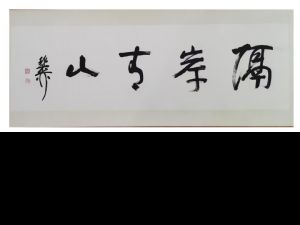 隔岸青山